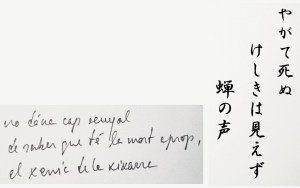 やがて死ぬ
けしきは見えず
蝉の声
no dóna cap senyal
de saber que té la mort aprop,
el xerric de la xixarra